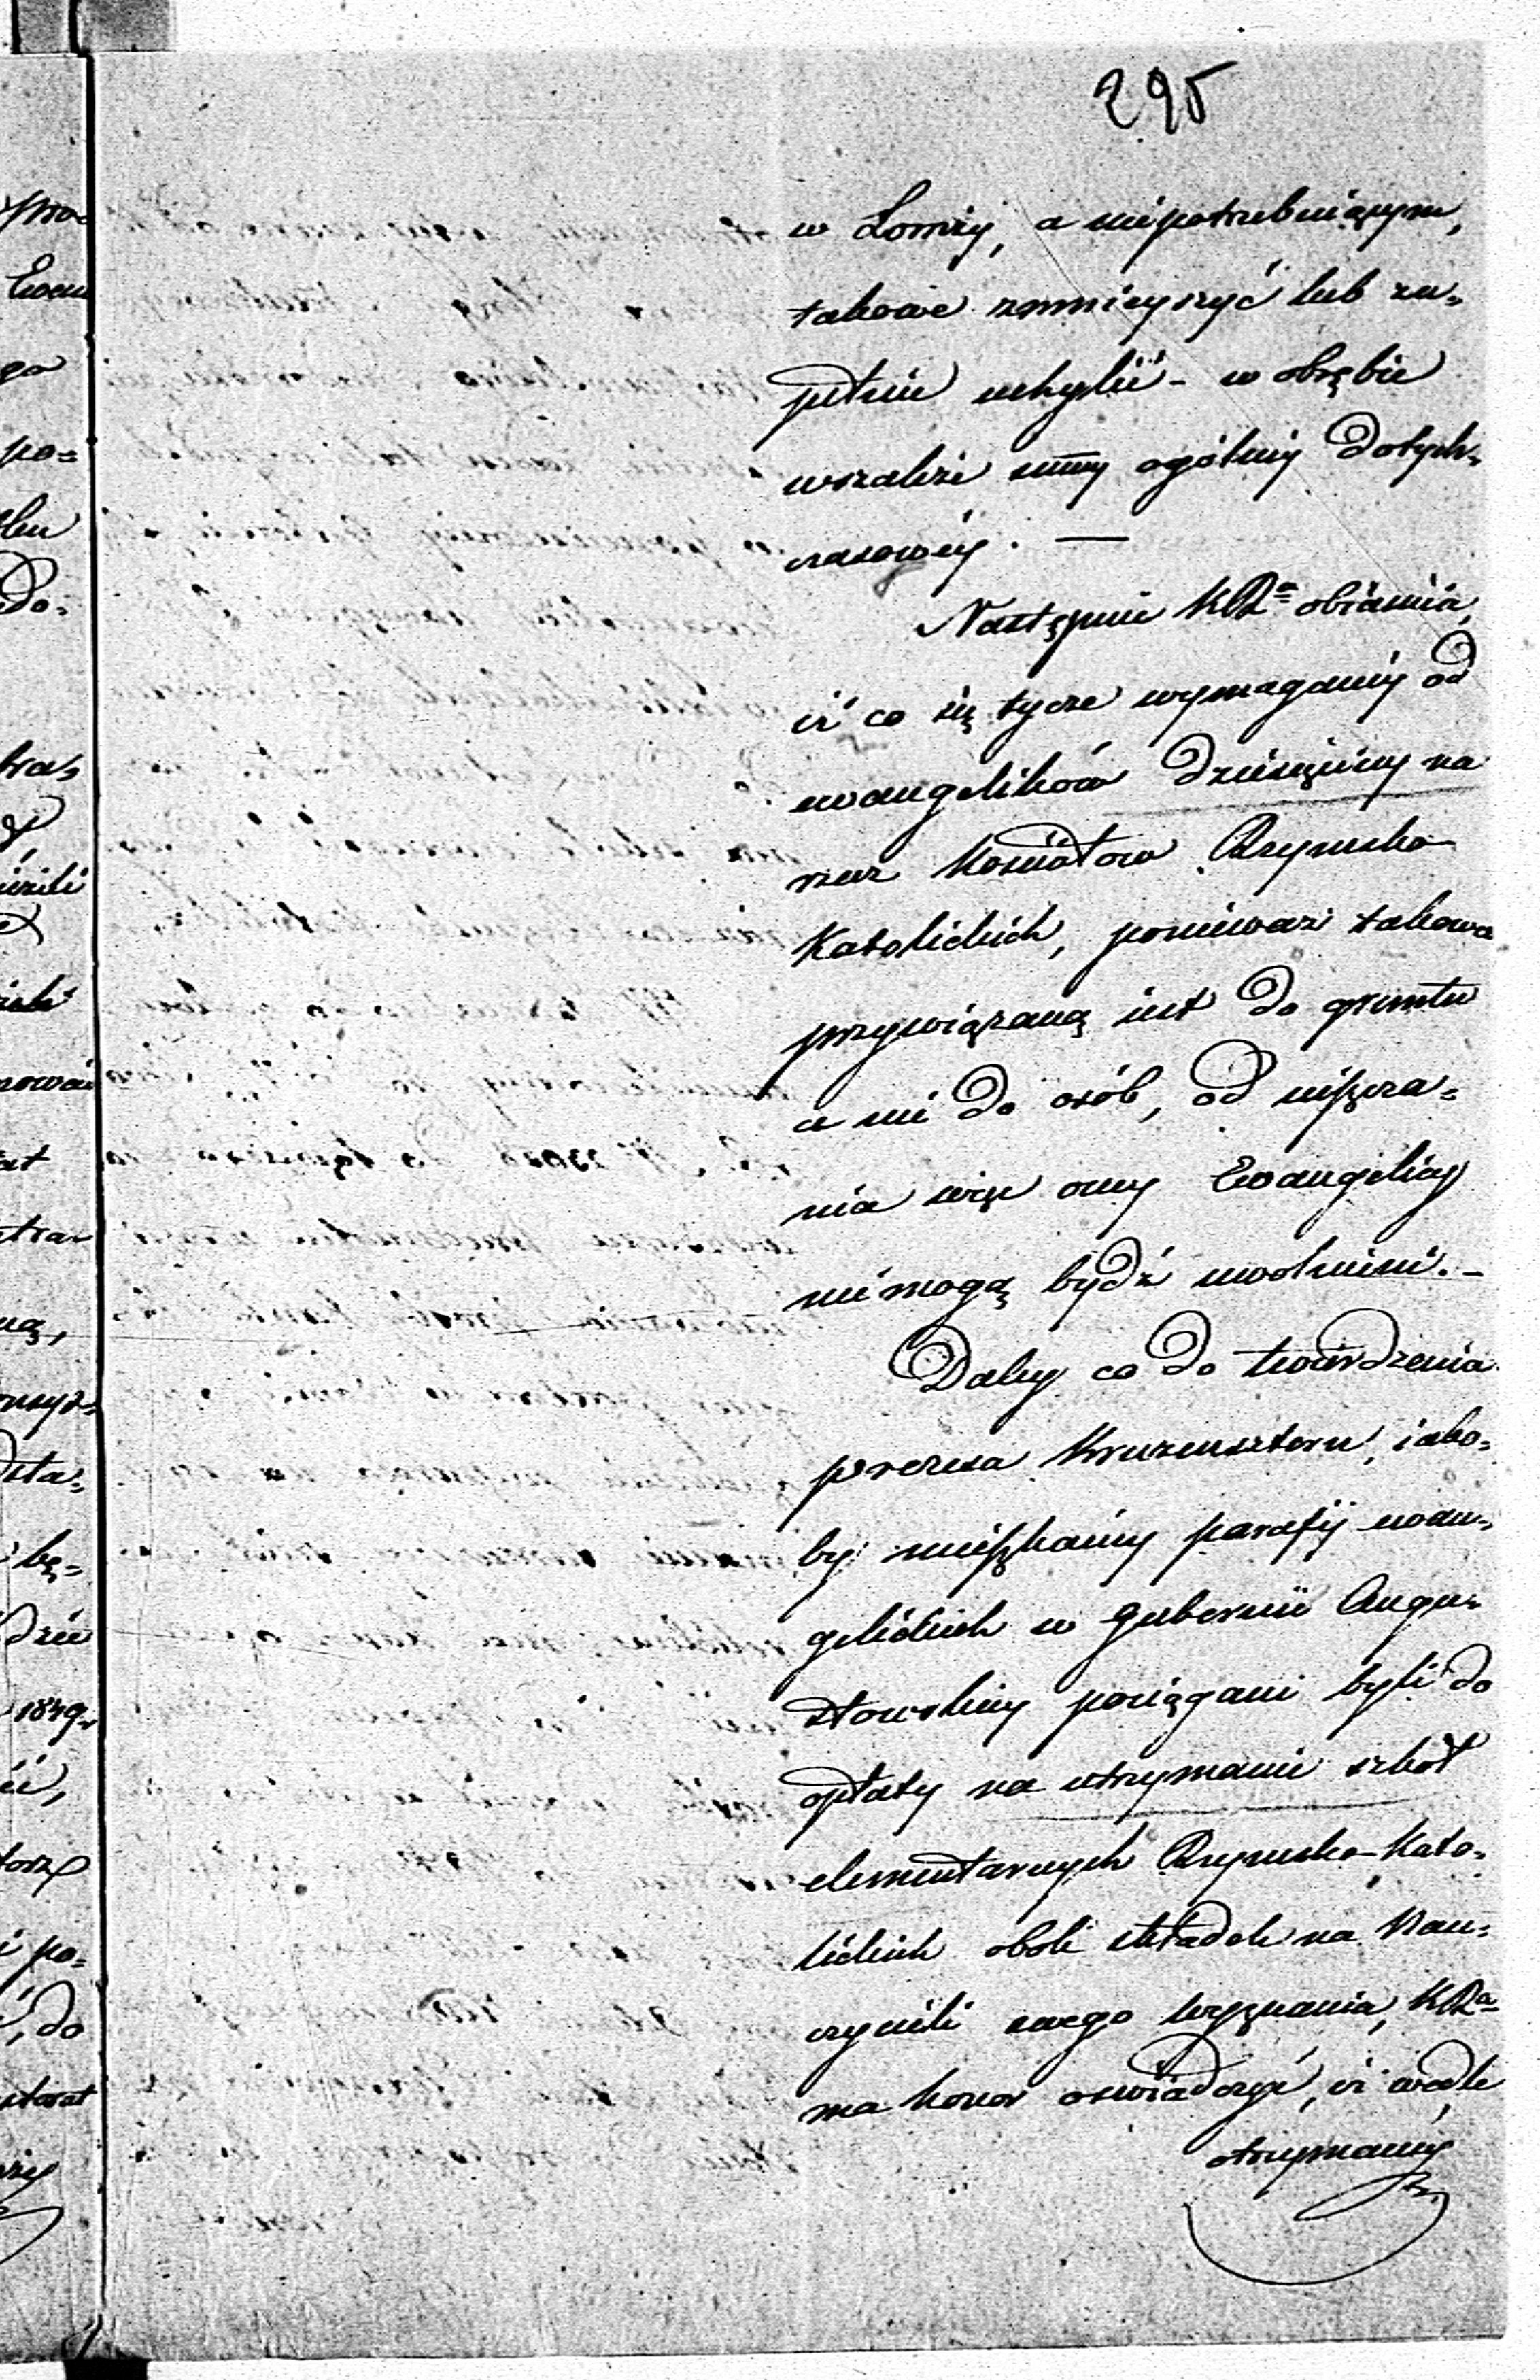 295
w Łomży, a niepotrzebniącym,
takowe zmnieyszyć lub zu=
pełnie uchylić - w obrębie
wszakże summy ogólnéy dotych=
czasowéy. —
Następnie KRa obiaśnia,
iż co się tycze wymaganéy od
ewangelików dziesięciny na
rzecz Kościołów Rzymsko
Katolickich, ponieważ takowa
przywiązaną iest do gruntu
a nie do osób, od uiszcza=
nia więc onéy Ewangelicy
nie mogą bydź uwolnieni. -
Daléy co do twierdzenia
prezesa Kruzensztern, iako=
by mieszkańcy parafij ewan=
gelickich w Gubernii Augu=
stowskiéy pociągani byli do
opłaty na utrzymanie szkół
elementarnych Rzymsko-Kato=
lickich obok składek na Nau=
czycieli swego wyznania, KRa
ma honor oświadczyć, iż wedle
otrzymanéy
pro=
Ewan
ga
po=
do=
1849r
bę=
dzie
i po=
, do